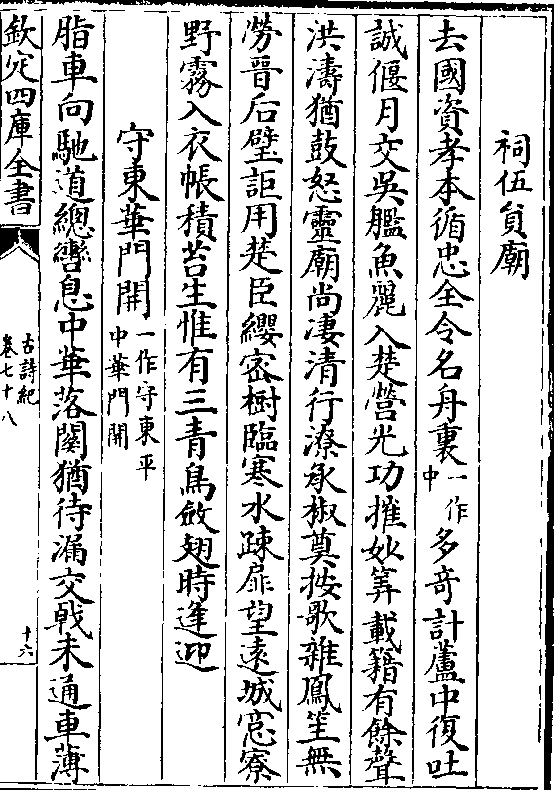 祠伍員廟
去國資孝本循忠全令名舟裏一作中多奇計蘆中復吐
誠偃月交吳艦魚麗入楚營光功摧妙筭載籍有餘聲
洪濤猶鼓怒靈廟尚凄清行潦承椒奠按歌雜鳳笙無
勞晉后璧詎用楚臣纓密樹臨寒水疎扉望遠城窓寮
野霧入衣帳積苔生惟有三青鳥斂翅時逢迎
守東華門開一作守東平中華門開
脂車向馳道總轡息中華落關猶待漏交戟未通車薄
欽定四庫全書
古詩紀
卷七十八
十六